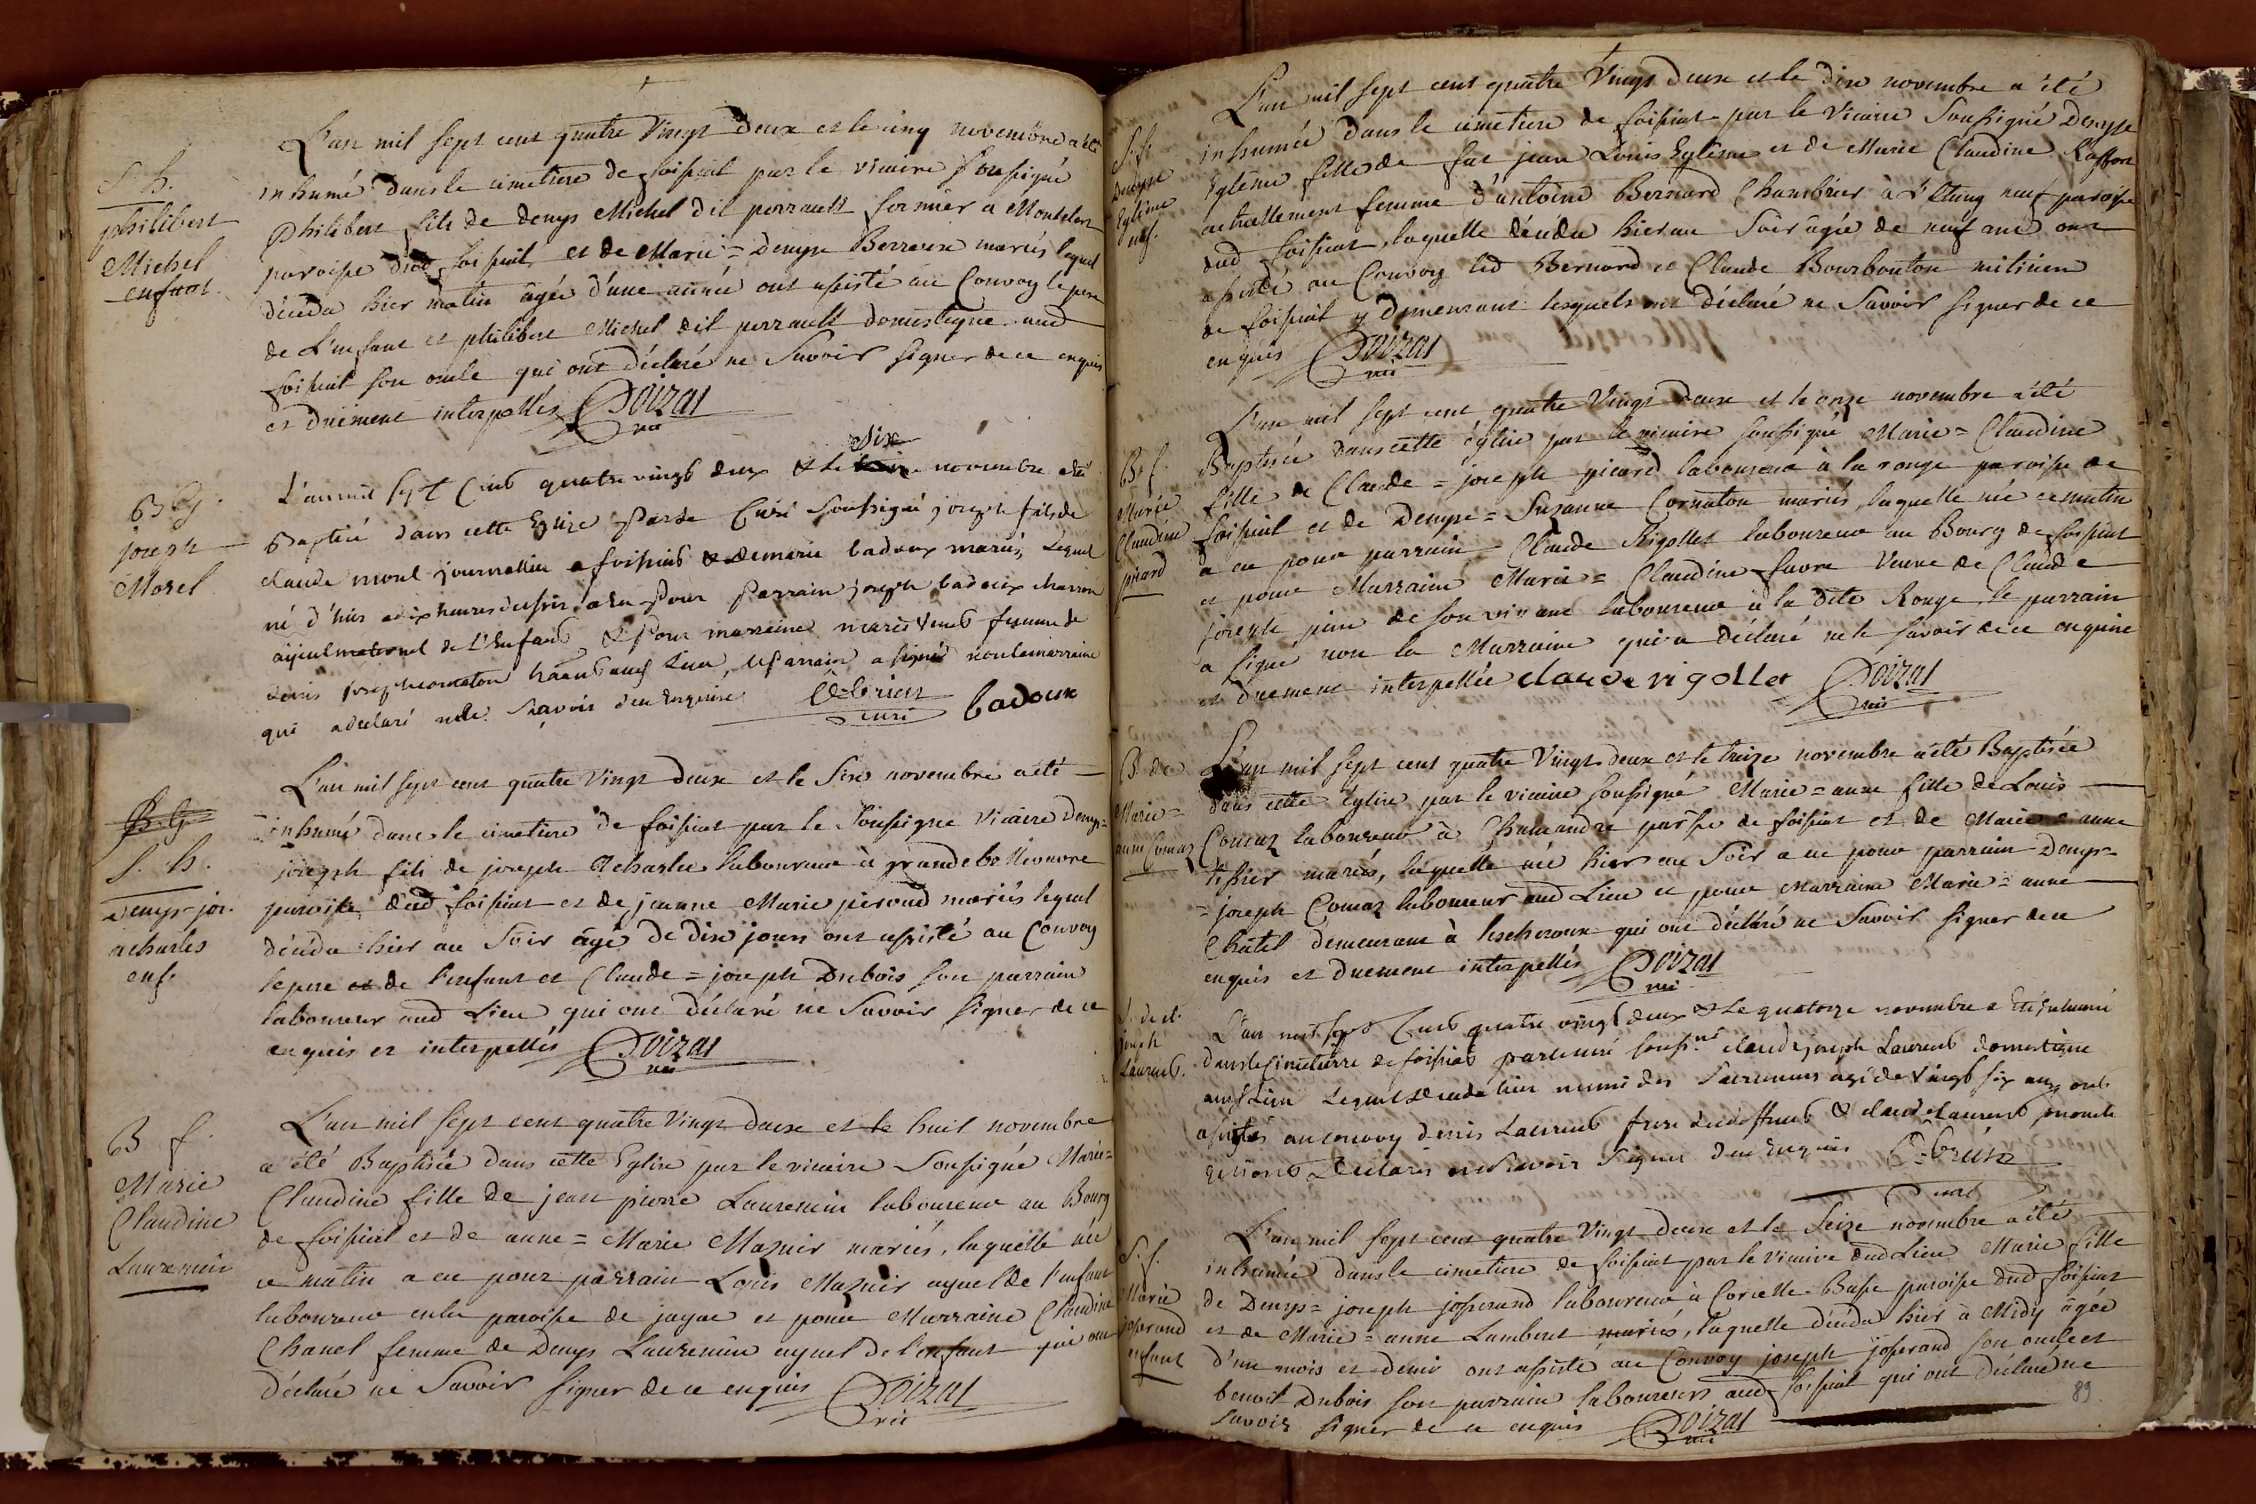 L'an mil sept cent quatre Vingt deux et le cinq novembre a été
inhumé dans le cimetiere de foissiat par le vicaire soussigné
S. h.
philibert
Michel
enfant.
Philibert fils de denys Michel dit perrault fermier a Montelart
paroisse dud foissiat et de Marie = Denyse Berreux mariés lequel
décéda hier matin âgée d'une année ont assisté au Convoy le pere
de L'enfant et philibert Michel dit perrault domestique aud
foissiat son oncle qui ont déclaré ne Savoir signer de ce enquis
et duëment interpellés Poizat
vic
six
L'an mil sept Cent quatre vingt deux & le novembre a été
B. g.
joseph
Morel
Baptisé dans cette Eglise par le Curé Soussigné joseph fils de
claude morel journallier a foissiat & de marie badoux mariés, Lequel
né d'hier a dix heures du soir, a eu Pour Parrain joseph badoux charron
ayieul maternel de L'Enfant & Pour marraine marie Venet femme de
Denis joseph cornaton Lieu, le Parrain a signé non la marraine
qui a declaré ne le Sçavoir de ce Enquise
curé badoux
L'an mil sept cent quatre Vingt deux et le Six novembre a été
B. g.
S. h.
denys = jos.
acharles
enf.
inhumé dans le cimetiere de foissiat par le Soussigné Vicaire Denys =
joseph fils de joseph Acharles laboureur à grandes
paroisse dud foissiat et de jeanne Marie piroud mariés lequel
décéda hier au Soir âgé de dix jours ont assisté au Convoy
le pere de l'enfant et Claude = joseph Dubois son parrain
laboureur aud Lieu qui ont déclaré ne Savoir signer de ce
enquis et interpellés Poizat
vic
L'an mil sept cent quatre Vingt deux et le huit novembre
B f.
Marie
Claudine
Laurencin
a été Baptisée dans cette Eglise par le vicaire Soussigné Marie =
Claudine fille de jean pierre Laurencin laboureur au Bourg
de foissiat et de anne = Marie Maznir mariés, laquelle née
ce matin a eu pour parrain Louis Maznir ayeul de l'enfant
laboureur en la paroisse de jayac et pour Marraine Claudine
Chanel femme de Denys Laurencin ayeul de l'enfant qui ont
déclaré ne Savoir signer de ce enquis Poizat
vic
L'an mil sept cent quatre Vingt deux et le dix novembre a été
S. f.
Denyse
Eglême
enf.
inhumée dans le cimetiere de foissiat par le Vicaire Soussigné Denyse
Eglême fille de feu jean Louis Eglême et de Marie Claudine Raffort
actuellement femme d'antoine Bernard Chambrier à L'Etang neuf paroisse
dud foissiat, laquelle décéda hier au Soir âgée de neuf ans ont
assisté au Convoy led Bernard et Claude Bourbouton
de foissiat y demeurant lesquels ont déclaré ne Savoir signer de ce
enquis Poizat
vic
L'an mil sept cent quatre Vingt deux et le onze novembre a été
B. f.
Marie
Claudine
picard
Baptisée dans cette église par le vicaire soussigné Marie = Claudine
fille de Claude = joseph picard laboureur à la rouge paroisse de
foissiat et de Denyse = Suzanne Cornaton mariés, laquelle née ce matin
a eu pour parrain Claude Rigollet laboureur au Bourg de foissiat
et pour Marraine Marie = Claudine favre Veuve de Claude
joseph de son vivant laboureur à la dite Rouge, le parrain
a signé non la Marraine qui a déclaré ne le savoir de ce enquise
et duement interpellée claude rigollet Poizat
vic
L'an mil sept cent quatre Vingt deux et le treize novembre a été Baptisée
B de
Marie =
anne Comaz
dans cette Eglise par le vicaire soussigné Marie = anne fille de Louis
Comaz laboureur à Chamandre parsse de foissiat et de Marie anne
tissier mariés, laquelle née hier au Soir a eu pour parrain Denys =
= joseph Comaz laboureur aud Lieu et pour Marraine Marie = anne
Châtel demeurant à lescheroux qui ont déclaré ne Savoir signer de ce
enquis et duement interpellés Poizat
vic
S. de cl.
joseph
Laurent.
L'an mil sept Cent quatre vingt deux & Le quatorze novembre a été inhumé
dans le Cimetierre de foissiat par le curé souss.né claude joseph Laurent domestique
aud. Lieu Lequel decede hier muni des Sacremens agé de Vingt six ans, ont
assistés au convoy denis Laurent frere du deffunt & claude Laurent son oncle
qui ont declarés ne Sçavoir Signer de ce Enquis
curé
L'an mil sept cent quatre Vingt deux et le Seize novembre a été
S. f.
Marie
josserand
enfant
inhumée dans le cimetiere de foissiat par le Vicaire dud Lieu Marie fille
de Denys = joseph josserand laboureur à Corcelle Basse paroisse dud foissiat
et de Marie = anne Lambert mariés, laquelle décéda hier à Midy âgée
d'un mois et demi ont assisté au Convoy joseph josserand son oncle et
benoit Dubois son parrain laboureurs aud foissiat qui ont déclaré ne
savoir signer de ce enquis Poizat
vic
89